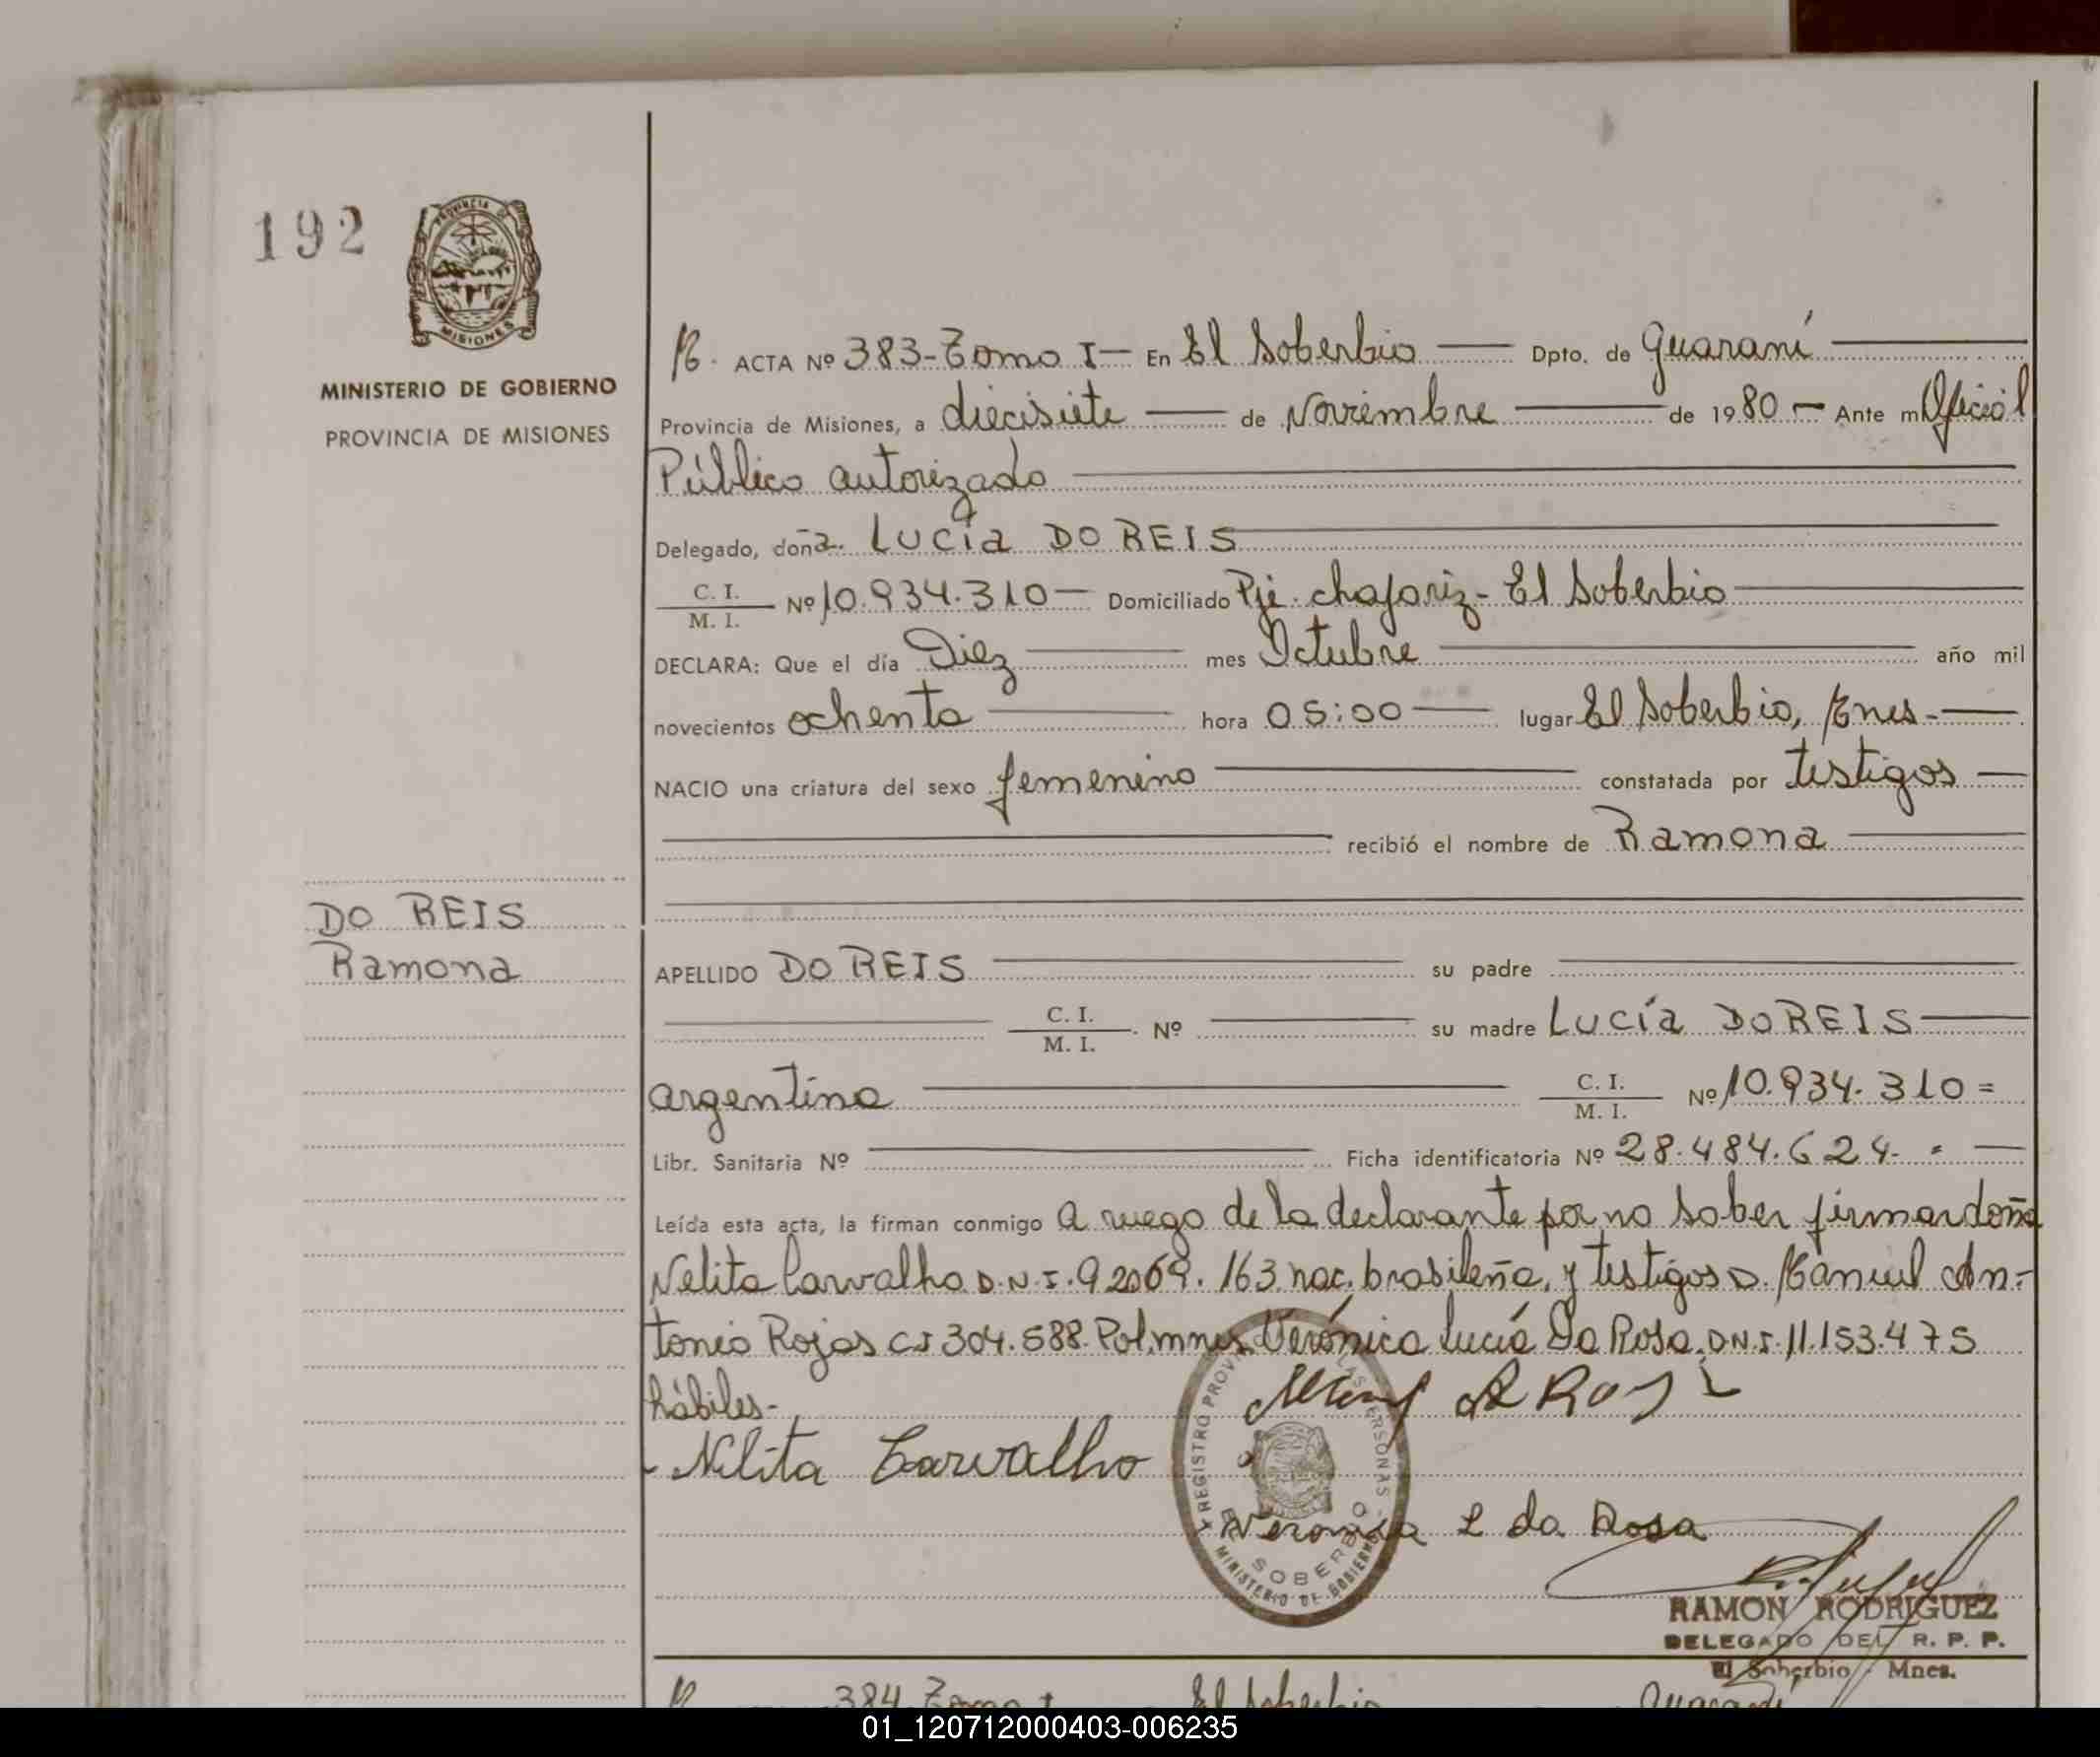 192
PROVINCIA DE
MISIONES
MINISTERIO DE GOBIERNO
PROVINCIA DE MISIONES
ACTA Nº 383-Tomo I- En El Soberbio Dpto. de Guaraní
Provincia de Misiones, a diecisiete de Noviembre de 1980 Ante mí Oficial
Público autorizado
Delegado, doña Lucía DO REIS
C. I. / M. I. Nº 10.934.310 Domiciliado Pje. chafariz - El Soberbio
DECLARA: Que el día Diez mes Octubre año mil
novecientos ochenta hora 05:00 lugar El Soberbio, Mnes-
NACIO una criatura del sexo femenino constatada por testigos
recibió el nombre de Ramona
DO REIS
Ramona
APELLIDO DO REIS su padre
C. I. / M. I. Nº su madre Lucía DO REIS
argentina C. I. / M. I. Nº 10.934.310=
Libr. Sanitaria Nº Ficha identificatoria Nº 28.484.624.
Leída esta acta, la firman conmigo A ruego de la declarante por no saber firmar doña
Nelita Carvalho D.N.I. 92069.163 nac. brasileña, y testigos D. Manuel An-
tonio Rojas CI 304.588 Pol. mnes Verónica Lucía Da Rosa, D.N.I. 11.153.475
hábiles-
Nelita Carvalho
Veronica L da Rosa
Y REGISTRO PROVIN LAS PERSONAS
EL SOBERBIO
MINISTERIO DE GOBIERNO
RAMON RODRIGUEZ
DELEGADO DEL R. P. P.
El Soberbio - Mnes.
384 Tomo I El Soberbio Guaraní
01_120712000403-006235